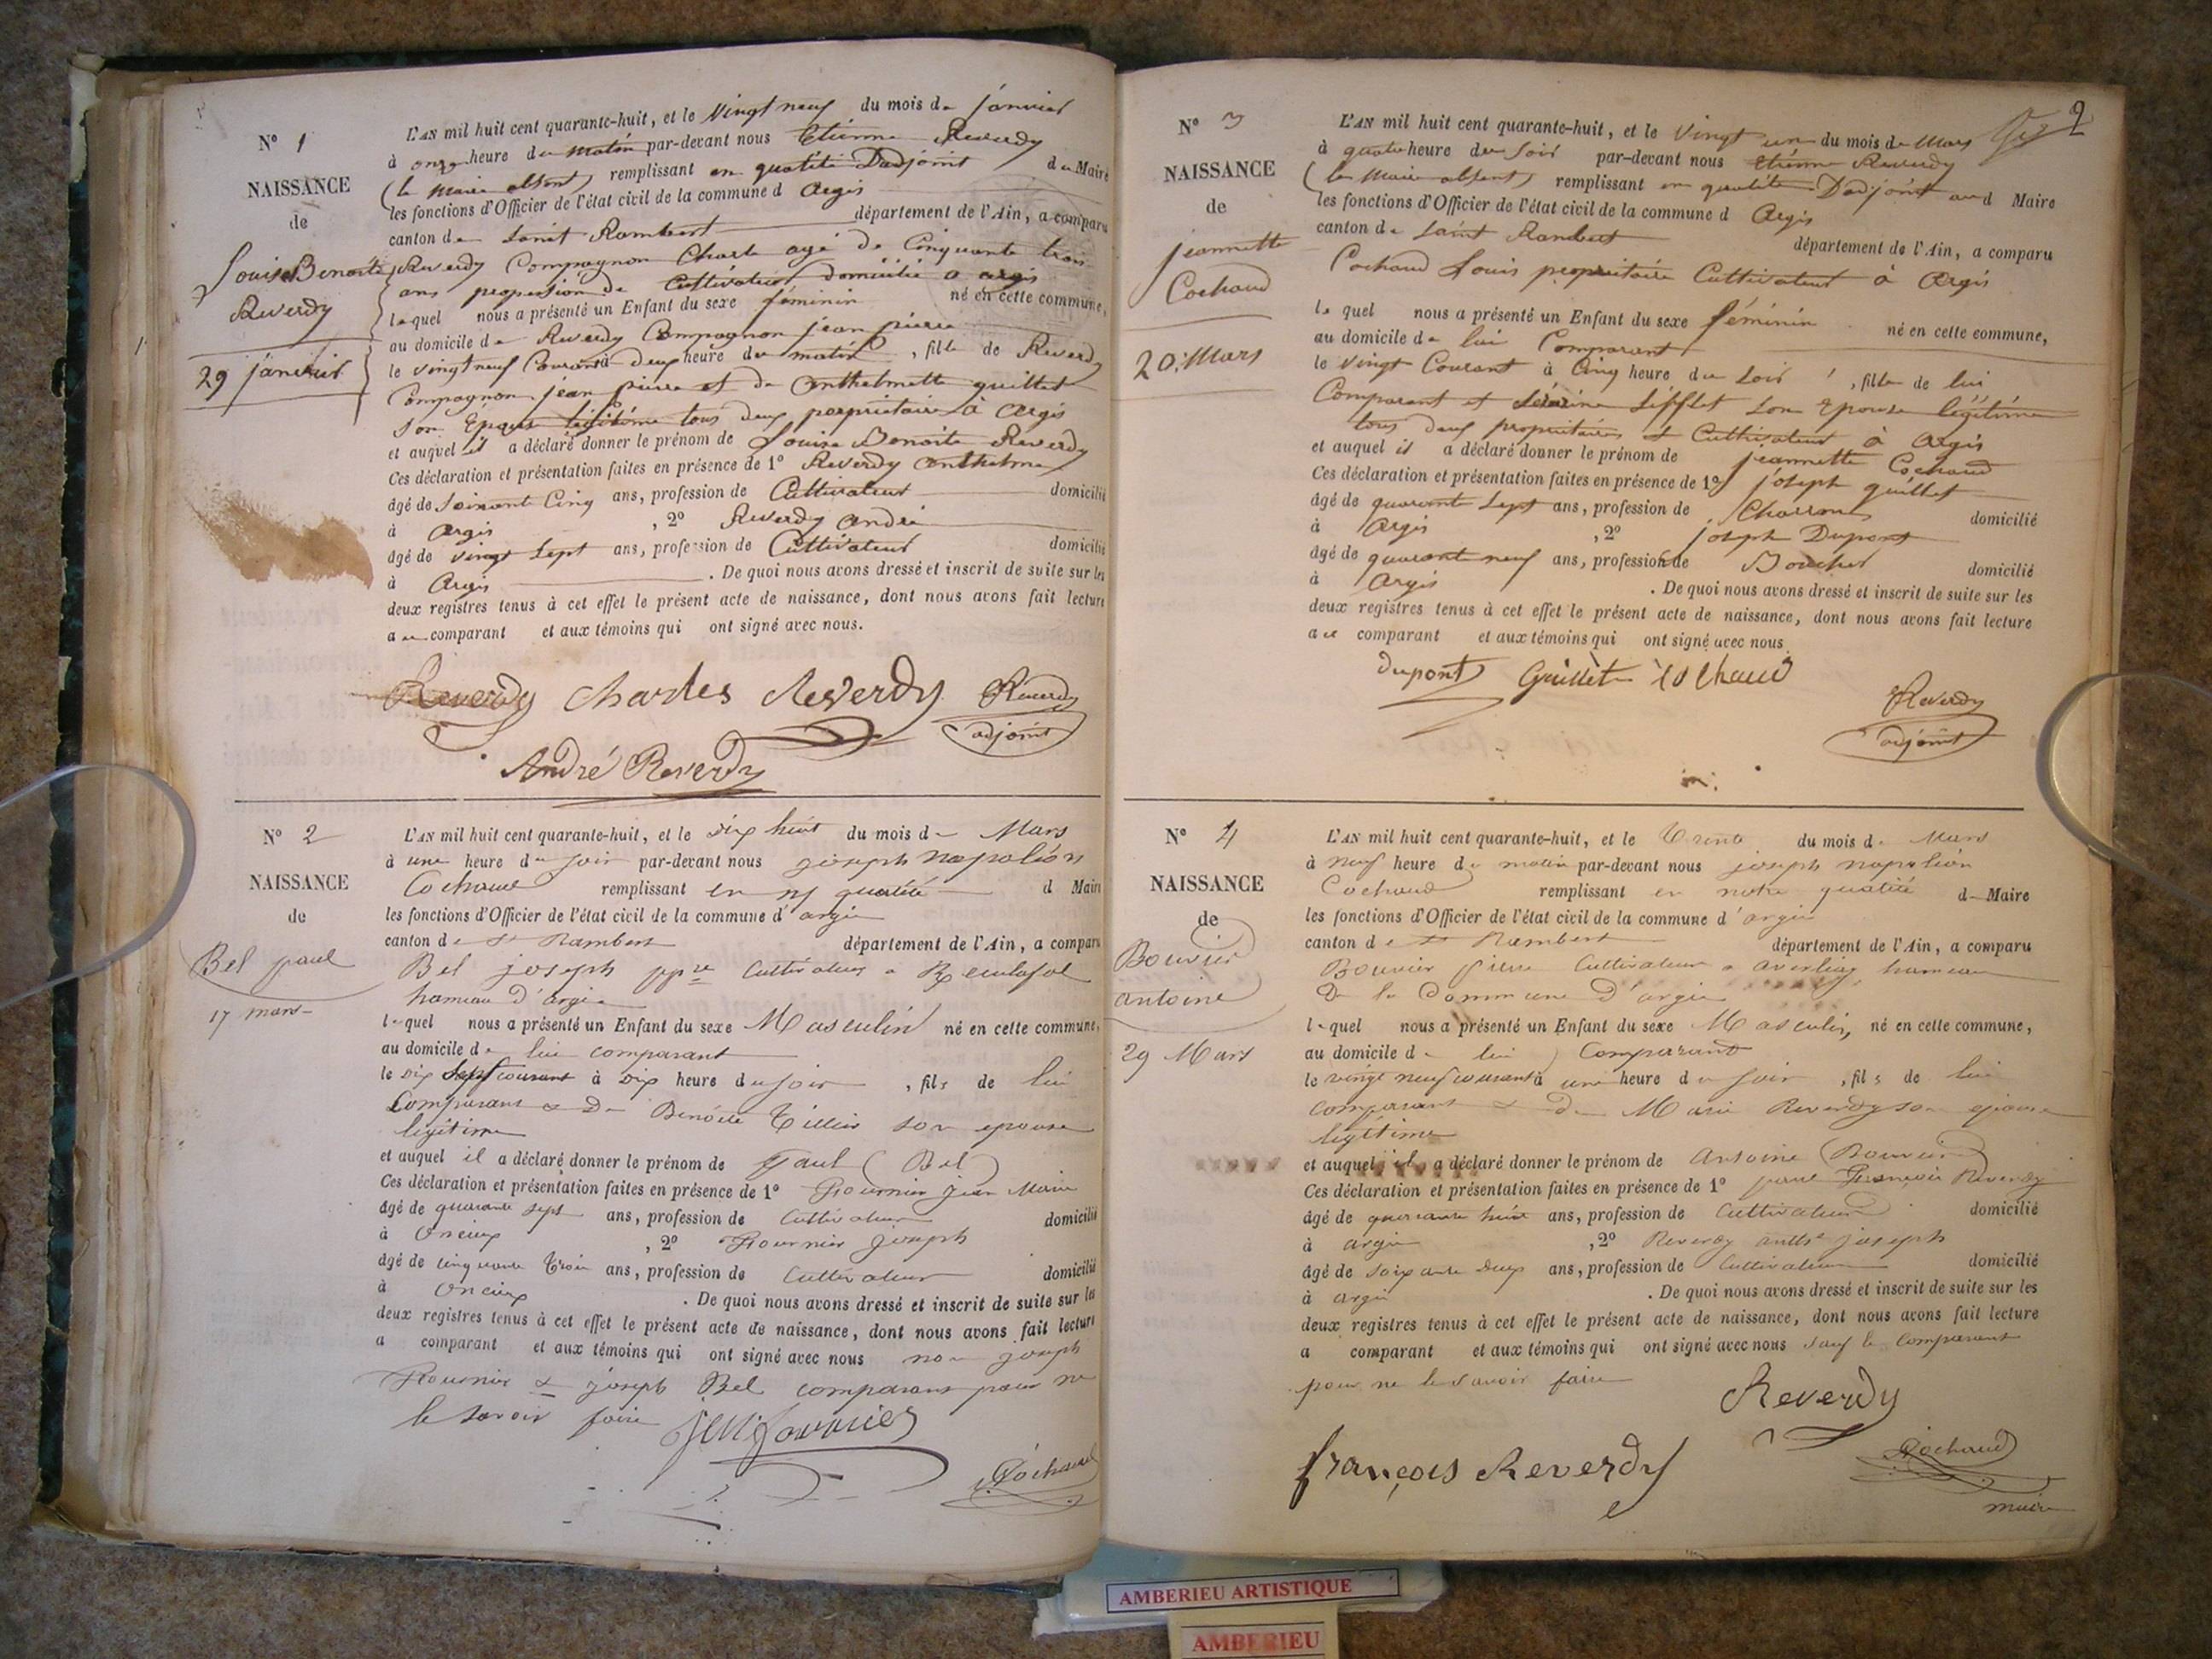 N° 1
NAISSANCE
de
Louise Benoite
Reverdy
29 janvier
L'AN mil huit cent quarante-huit, et le Vingt neuf du mois de janvier
à onze heure du matin par-devant nous Etienne Reverdy
(le Maire absent) remplissant en qualité D'adjoint du Maire
les fonctions d'Officier de l'état civil de la commune d Argis
canton de Saint Rambert département de l'Ain, a comparu
Reverdy Compagnon Charle agé de Cinquante trois
ans profession de Cultivateur domicilié a argis
lequel nous a présenté un Enfant du sexe féminin né en cette commune,
au domicile de Reverdy Compagnon jean pierre
le vingt neuf Courant à deux heure du matin, fille de Reverdy
Compagnon jean pierre et de Anthelmette guillet
Son Epouse légitime tous deux propriétaire à Argis
et auquel il a déclaré donner le prénom de Louise Benoite Reverdy
Ces déclaration et présentation faites en présence de 1° Reverdy Anthelme
âgé de Soixante Cinq ans, profession de Cultivateur domicilié
à Argis , 2° Reverdy André
âgé de vingt Sept ans, profession de Cultivateur domicilié
à Argis . De quoi nous avons dressé et inscrit de suite sur les
deux registres tenus à cet effet le présent acte de naissance, dont nous avons fait lecture
au comparant et aux témoins qui ont signé avec nous.
Reverdy Charles Reverdy Reverdy
adjoint
André Reverdy
N° 2
NAISSANCE
de
Bel paul
17 mars
L'AN mil huit cent quarante-huit, et le Dix huit du mois de Mars
à une heure du soir par-devant nous joseph napoléon
Cochaud remplissant en qualité d Maire
les fonctions d'Officier de l'état civil de la commune d'argis
canton de St Rambert département de l'Ain, a comparu
Bel joseph ppre Cultivateur a
hameau d'argis
lequel nous a présenté un Enfant du sexe Masculin né en cette commune,
au domicile de lui comparant
le Dix Sept courant à Dix heure du soir , fils de lui
Comparant & De Benoite Tillier son epouse
légitime
et auquel il a déclaré donner le prénom de Paul (Bel)
Ces déclaration et présentation faites en présence de 1° Fournier jean Marie
âgé de quarante sept ans, profession de Cultivateur domicilié
à Oncieux , 2° Fournier joseph
âgé de cinquante trois ans, profession de Cultivateur domicilié
à Oncieux . De quoi nous avons dressé et inscrit de suite sur les
deux registres tenus à cet effet le présent acte de naissance, dont nous avons fait lecture
a comparant et aux témoins qui ont signé avec nous non joseph
Fournier & joseph Bel comparant pour ne
le savoir faire
Cochaud
2
N° 3
NAISSANCE
de
jeannette
Cochaud
20 Mars
L'AN mil huit cent quarante-huit, et le Vingt un du mois de Mars
à quatre heure du Soir par-devant nous Etienne Reverdy
(le Maire absent) remplissant en qualité D'adjoint au d Maire
les fonctions d'Officier de l'état civil de la commune d Argis
canton de Saint Rambert département de l'Ain, a comparu
Cochaud Louis propriétaire Cultivateur à Argis
le quel nous a présenté un Enfant du sexe féminin né en cette commune,
au domicile de lui Comparant
le vingt Courant à Cinq heure du Soir , fille de lui
Comparant et Séraine Sifflet Son Epouse légitime
tous deux propriétaires et Cultivateur à Argis
et auquel il a déclaré donner le prénom de jeannette Cochaud
Ces déclaration et présentation faites en présence de 1° joseph guillet
âgé de quarante Sept ans, profession de Charron domicilié
à Argis , 2° joseph Dupont
âgé de quarant neuf ans, profession de Boucher domicilié
à Argis . De quoi nous avons dressé et inscrit de suite sur les
deux registres tenus à cet effet le présent acte de naissance, dont nous avons fait lecture
au comparant et aux témoins qui ont signé avec nous
dupont Guillet Cochaud
Reverdy
adjoint
N° 4
NAISSANCE
de
Bouvier
antoine
29 Mars
L'AN mil huit cent quarante-huit, et le Trente du mois de Mars
à neuf heure du matin par-devant nous joseph napoléon
Cochaud remplissant en notre qualité de Maire
les fonctions d'Officier de l'état civil de la commune d'argis
canton de St Rambert département de l'Ain, a comparu
Bouvier pierre Cultivateur a averliaz hameau
De la Commune D'argis
lequel nous a présenté un Enfant du sexe Masculin, né en cette commune,
au domicile de lui Comparant
le vingt neuf courant à une heure du soir , fils de lui
comparant & De Marie Reverdy son epouse
legitime
et auquel il a déclaré donner le prénom de Antoine (Bouvier)
Ces déclaration et présentation faites en présence de 1° paul françois Reverdy
âgé de quarante huit ans, profession de Cultivateur domicilié
à argis , 2° Reverdy anthe joseph
âgé de soixante deux ans, profession de Cultivateur domicilié
à argis . De quoi nous avons dressé et inscrit de suite sur les
deux registres tenus à cet effet le présent acte de naissance, dont nous avons fait lecture
a comparant et aux témoins qui ont signé avec nous sauf le Comparant
pour ne le savoir faire
Reverdy
françois Reverdy
Cochaud
maire
AMBERIEU ARTISTIQUE
AMBERIEU